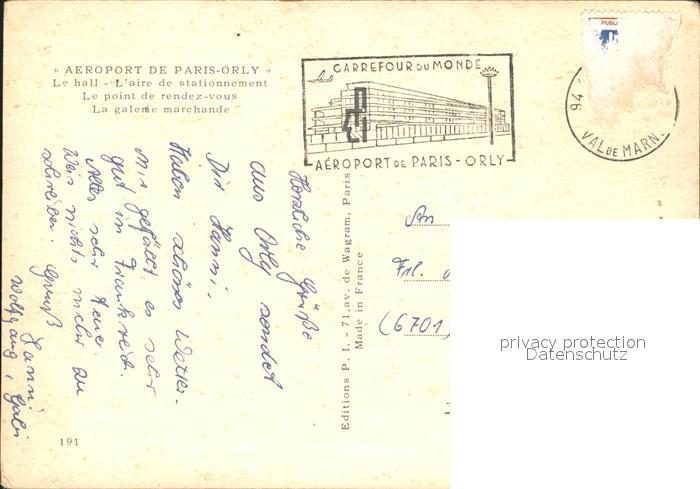 « AEROPORT DE PARIS-ORLY »
Le hall - L'aire de stationnement
Le point de rendez-vous
La galerie marchande
CARREFOUR DU MONDE
AÉROPORT DE PARIS - ORLY
PUBLI
94 -
VAL DE MARN.
Herzliche Grüße
aus Orly sendet
Dir Hanni.
Haben schönes Wetter.
Mir gefällt es sehr
gut in Frankreich.
Alles sehr teuer.
Weis nichts mehr zu
schreiben. Gruß
Hanni
Wolfgang, Gabi
Editions P. I. - 71, av. de Wagram, Paris
Made in France
An
Frl.
(6701)
privacy protection
Datenschutz
191